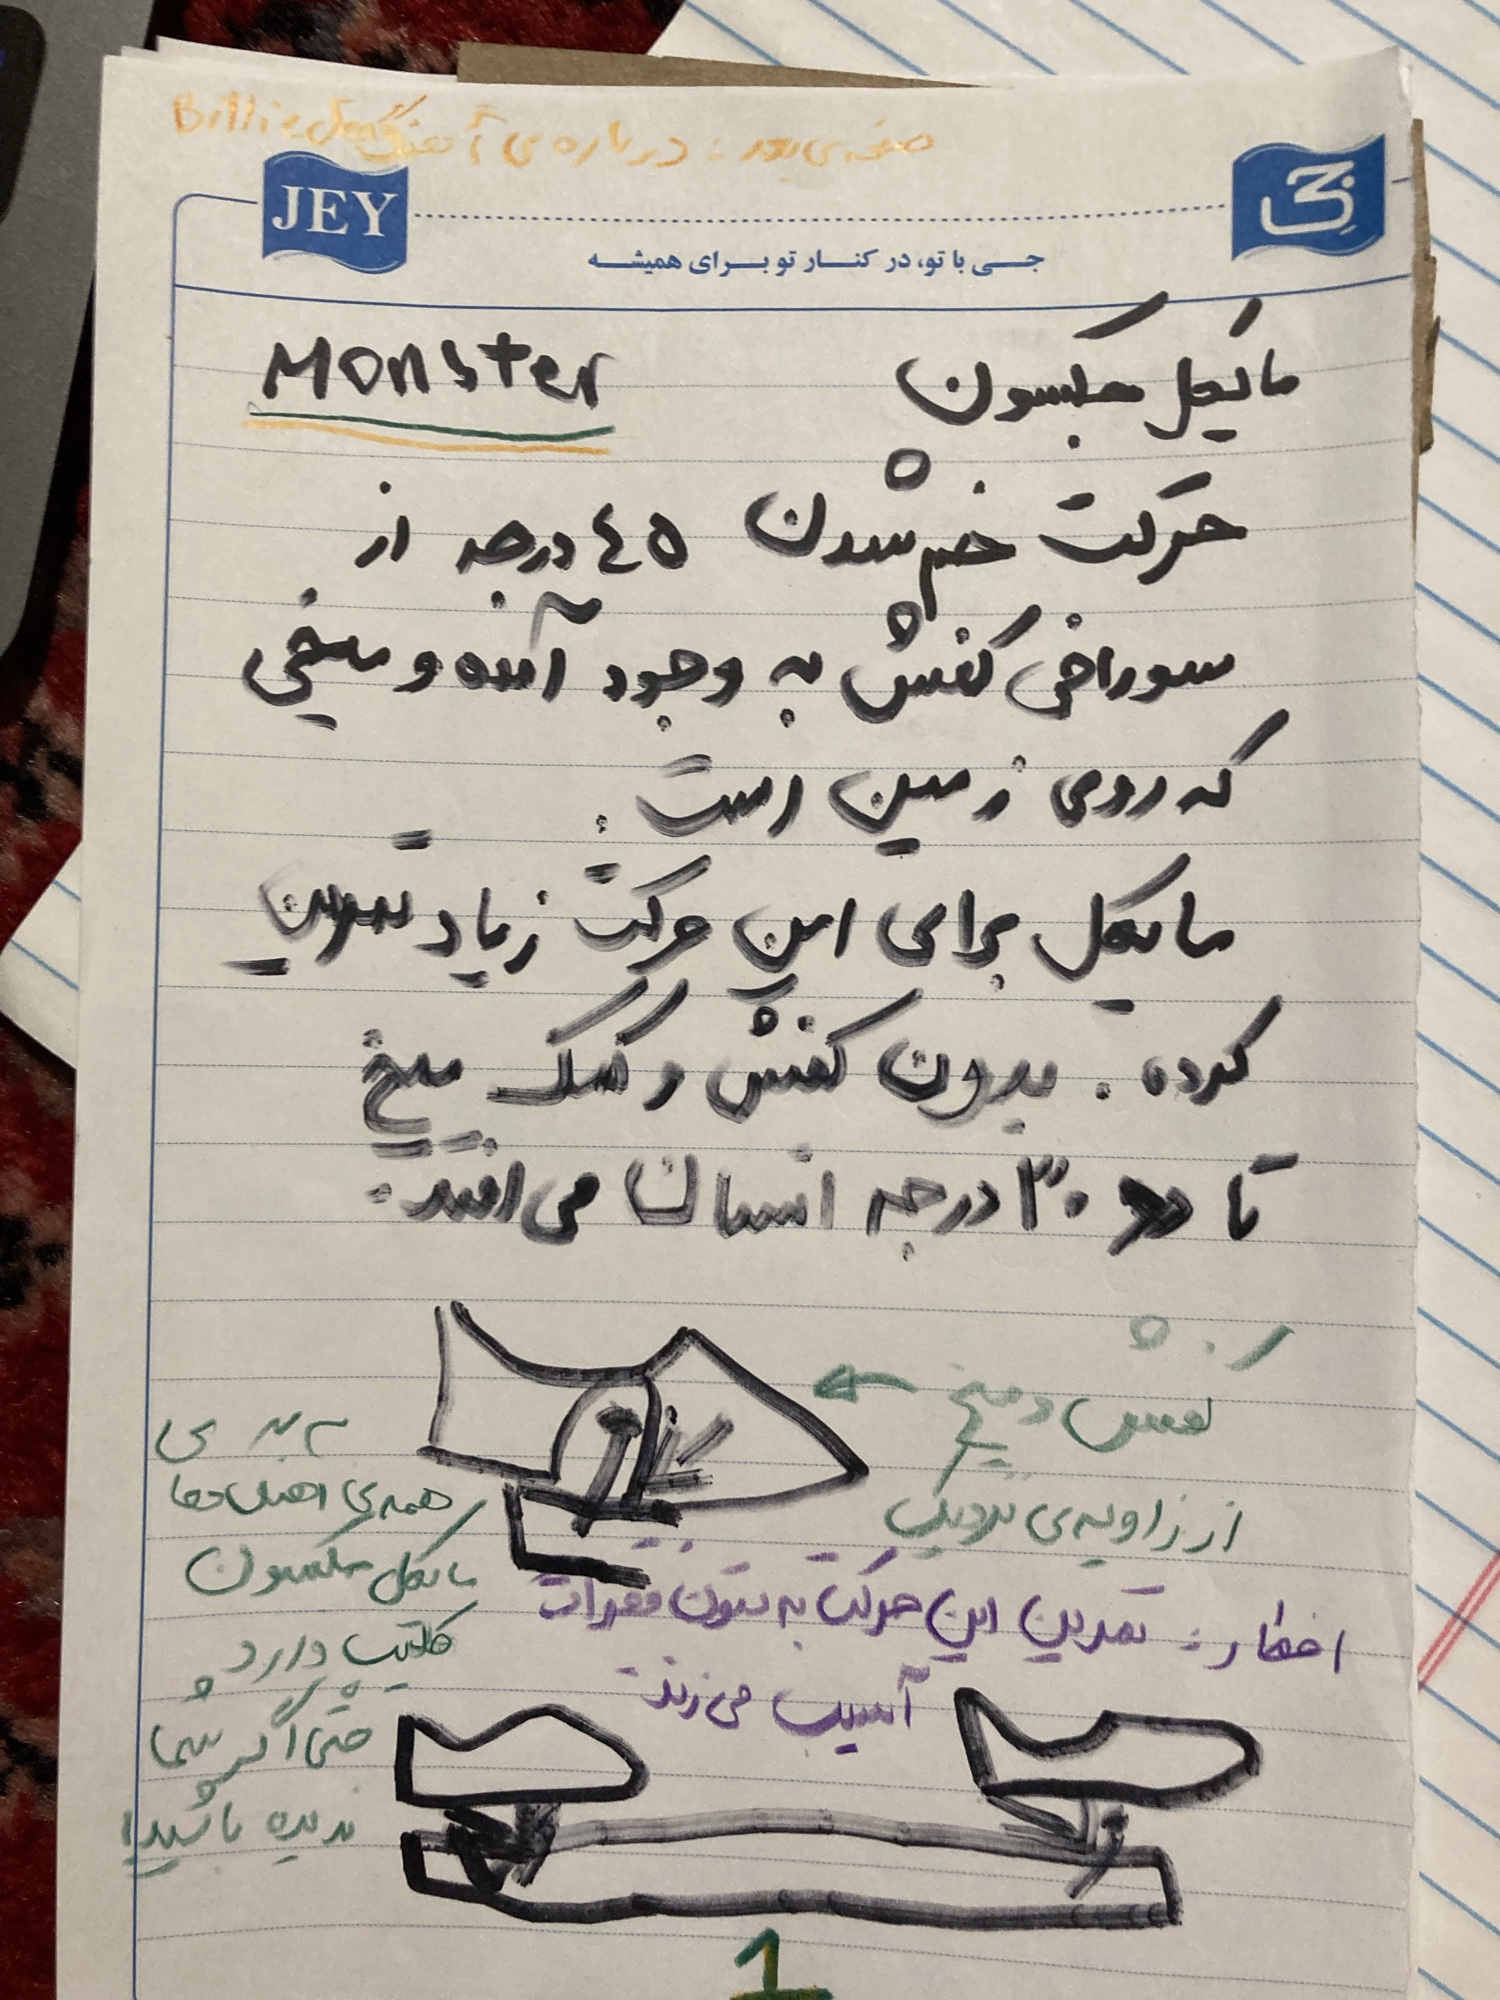 صفحه‌ی بعد : درباره‌ی آهنگ Billie Jean
JEY
جی
جی با تو، در کنار تو برای همیشه
مایکل جکسون
Monster
حرکت خم شدن ٤٥ درجه از
سوراخی کفش به وجود آمده و میخی
که روی زمین است.
مایکل برای این حرکت زیاد تمرین
کرده . بدون کفش و کمک میخ
تا ۳۰ درجه انسان می‌افتد.
کفش و میخ
از زاویه‌ی نزدیک
همه‌ی آهنگ‌های
مایکل جکسون
کلیپ دارد
حتی اگر شما
ندیده باشید!
اخطار : تمرین این حرکت به ستون فقرات
آسیب می‌زند.
1